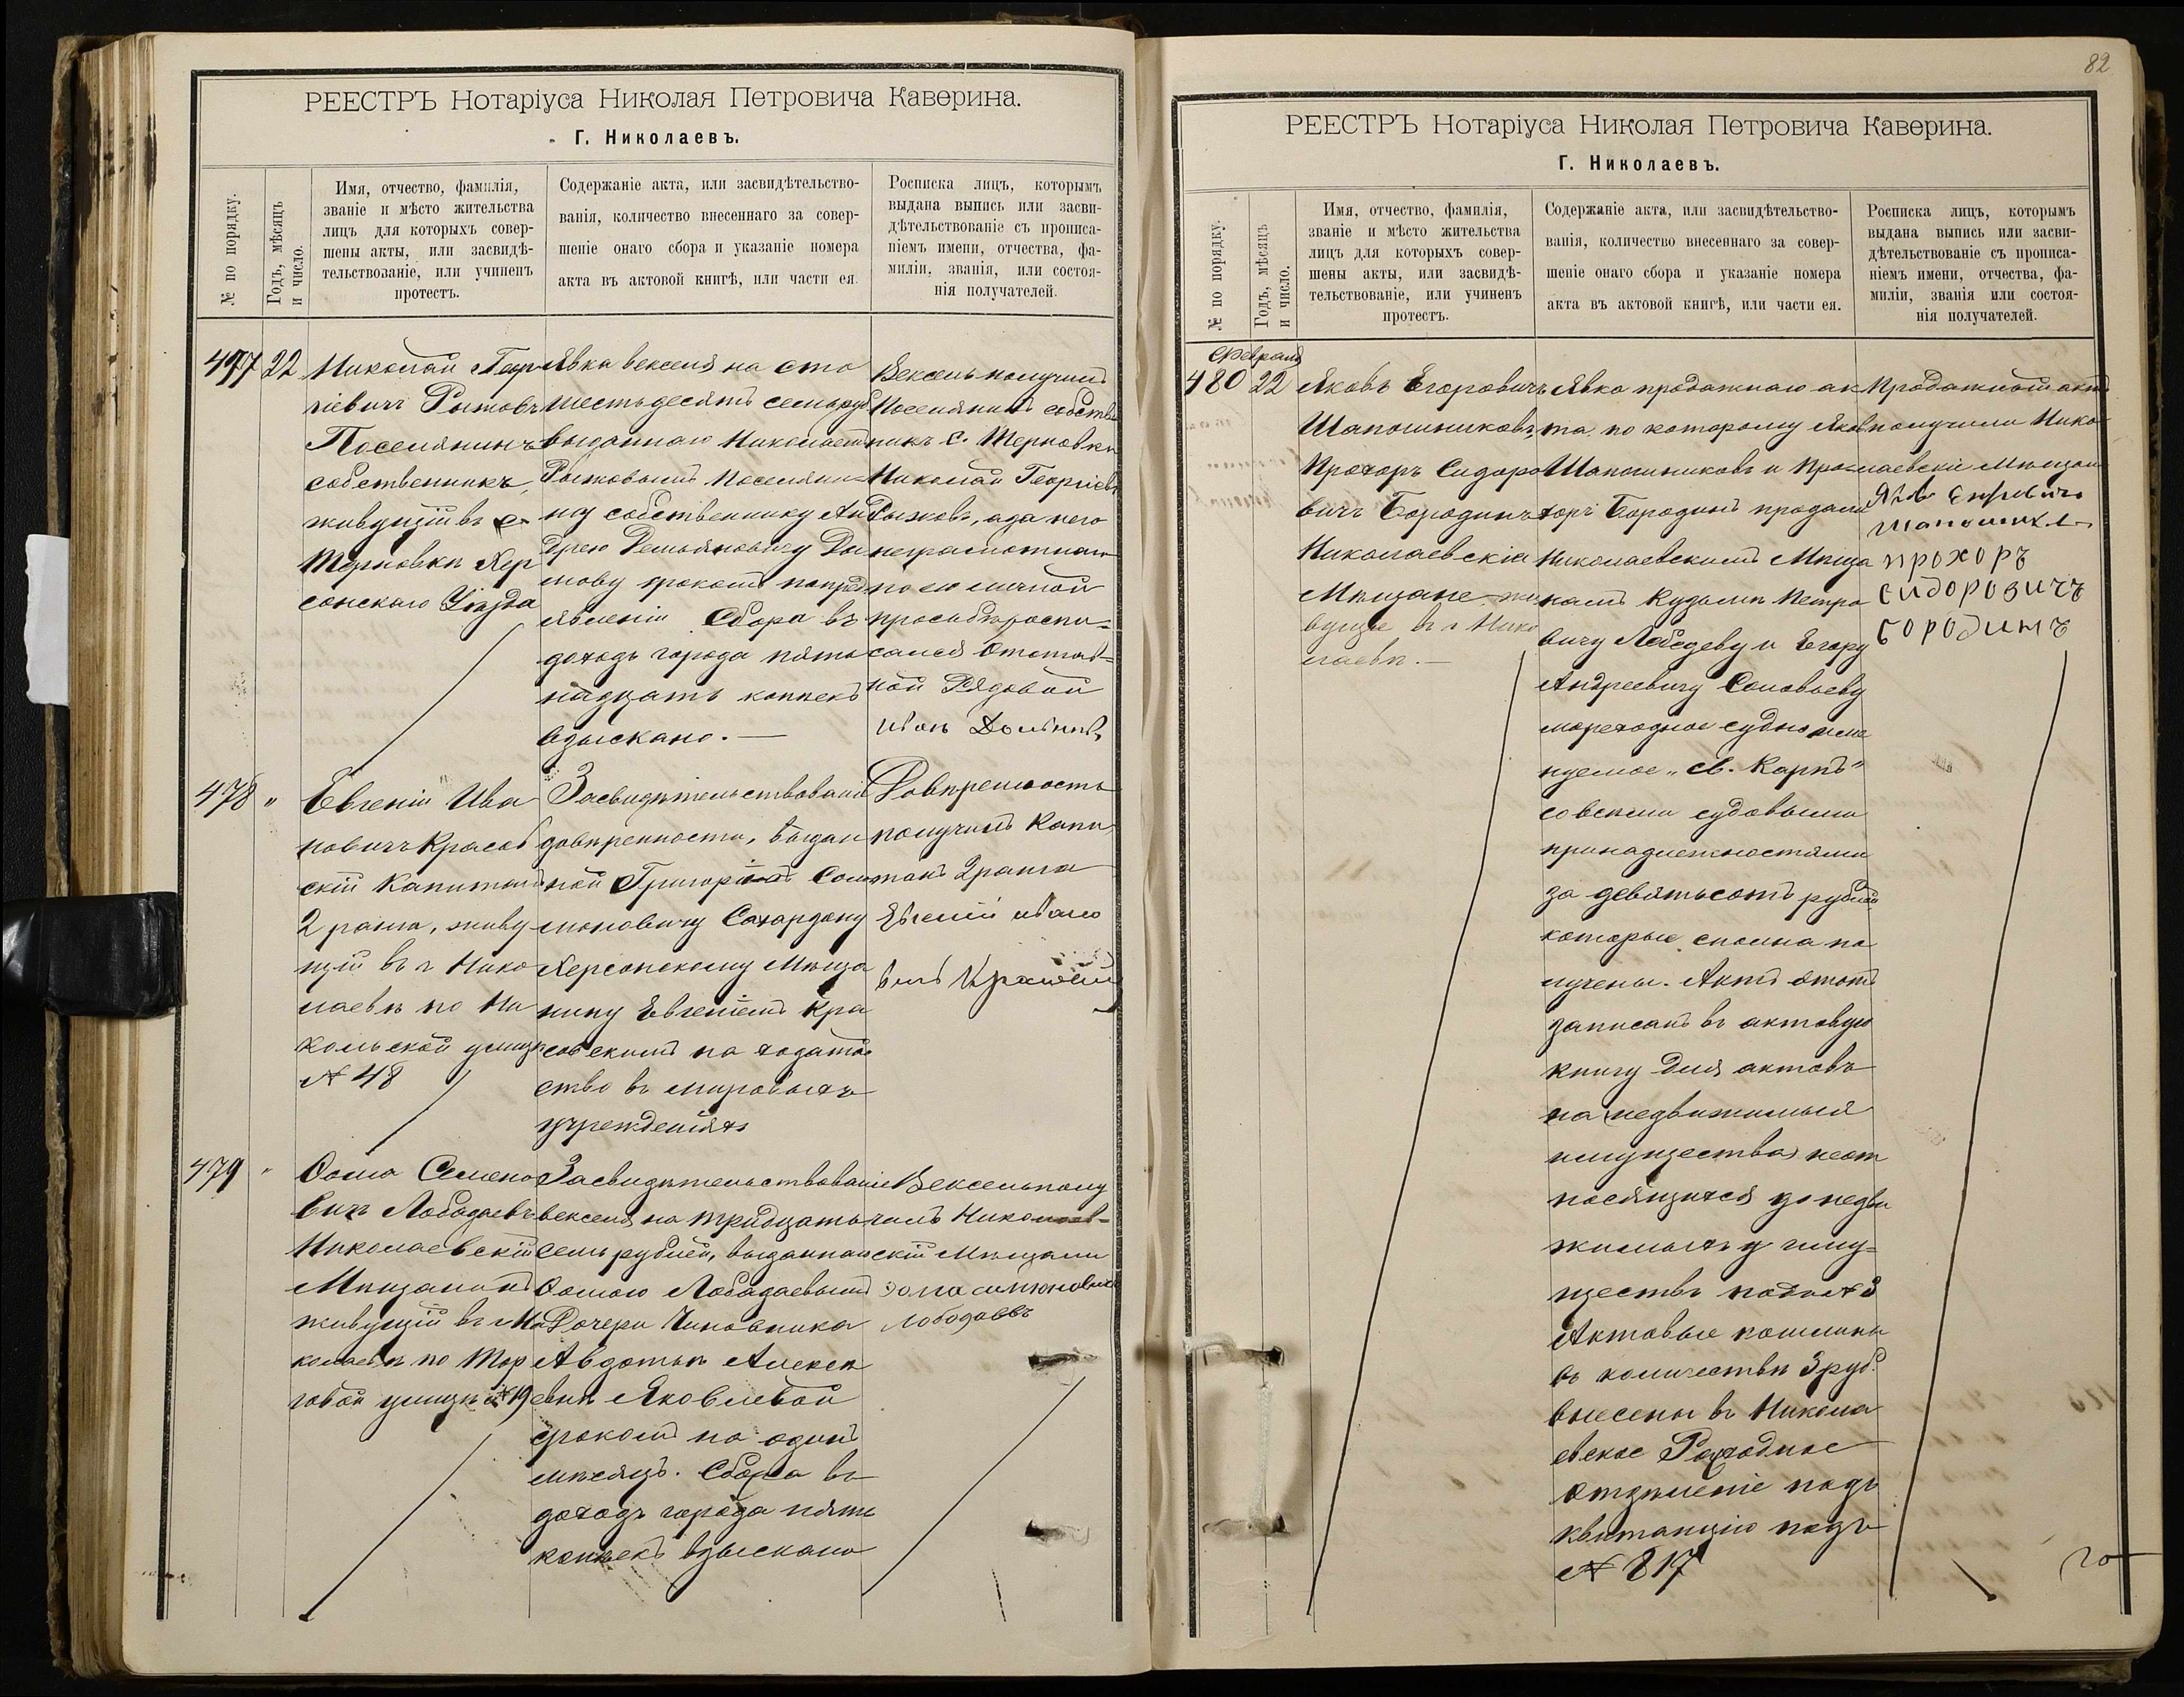 РЕЕСТРЪ Нотаріуса Николая Петровича Каверина.
Г. Николаевъ.
№ по порядку.
Годъ, мѣсяцъ
и число.
Имя, отчество, фамилія,
званіе и мѣсто жительства
лицъ для которыхъ совер-
шены акты, или засвидѣ-
тельствованіе, или учиненъ
протестъ.
Содержаніе акта, или засвидѣтельство-
ванія, количество внесеннаго за совер-
шеніе онаго сбора и указаніе номера
акта въ актовой книгѣ, или части ея.
Росписка лицъ, которымъ
выдана выпись или засви-
дѣтельствованіе съ прописа-
ніемъ имени, отчества, фа-
миліи, званія, или состоя-
нія получателей.
477
22
Николай Геор
гіевичъ Рыжовъ
Поселянинъ
собственникъ,
живущій въ с.
Терновки Хер
сонскаго Уѣзда
Явка векселя на сто
шестьдесятъ семь руб
выданнаго Николаемъ
Рыжовымъ Поселяни-
ну собственнику Ан
дрею Демьяновичу
срокомъ по предъ
явленіи Сбора въ
доходъ города пят
надцать копѣекъ
взыскано.
Вексель получилъ
Поселянинъ собствен
никъ с. Терновки
Николай Георгіевъ
Рыжовъ, а за него
неграмотнаго
по его личной
просьбѣ роспи-
сался Отстав-
ной Рядовой
478
"
Евгеній Ива
новичъ Красов
скій Капитанъ
2 ранга, живу
щій въ г. Нико
лаевѣ по Ни
кольской улицѣ
№ 48
Засвидѣтельствованіе
довѣренности, выдан
ной Григорію Соло
моновичу
Херсонскому Мѣща
нину Евгеніемъ Кра
совскимъ на ходатай
ство въ мировыхъ
учрежденіяхъ
Довѣренность
получилъ Капи
танъ 2 ранга
Евгеній Ивано
вичъ Красовскій
479
"
Ѳома Семено
вичъ Лободаевъ
Николаевскій
Мѣщанинъ
живущій въ г. Ни
колаевѣ по Тор
говой улицѣ № 19
Засвидѣтельствованіе
векселя на тридцать
семь рублей, выданнаго
Ѳомою Лободаевымъ
Дочери Чиновника
Авдотьѣ Алексѣ
евнѣ Яковлевой
срокомъ на одинъ
мѣсяцъ. Сбора въ
доходъ города пять
копѣекъ взыскано
Вексель полу
чилъ Николаев-
скій Мѣщани
лободаевъ
82
РЕЕСТРЪ Нотаріуса Николая Петровича Каверина.
Г. Николаевъ.
№ по порядку.
Годъ, мѣсяцъ
и число.
Имя, отчество, фамилія,
званіе и мѣсто жительства
лицъ для которыхъ совер-
шены акты, или засвидѣ-
тельствованіе, или учиненъ
протестъ.
Содержаніе акта, или засвидѣтельство-
ванія, количество внесеннаго за совер-
шеніе онаго сбора и указаніе номера
акта въ актовой книгѣ, или части ея.
Росписка лицъ, которымъ
выдана выпись или засви-
дѣтельствованіе съ прописа-
ніемъ имени, отчества, фа-
миліи, званія или состоя-
нія получателей.
Февраля
480
22
Яковъ Егоровичъ
Шапошниковъ,
Прохоръ Сидоро
вичъ Бородинъ
Николаевскіе
Мѣщане жи
вущіе въ г. Нико
лаевѣ.
Явка продажнаго ак
та по которому Яковъ
Шапошниковъ и Про
хоръ Бородинъ продали
Николаевскимъ Мѣща
намъ Кузьмѣ Петро
вичу Лебедеву и Егору
Андреевичу Соловьеву
мореходное судно име
нуемое „Св. Карпъ"
со всѣми судовыми
принадлежностями
за девятьсотъ рублей
которые сполна по
лучены. Актъ этотъ
записанъ въ актовую
книгу для актовъ
на недвижимыя
имущества неот
носящихся до недви
жимыхъ иму-
ществъ подъ № 3
Актовые пошлины
въ количествѣ 3 руб.
внесены въ Никола
евское Расходное
Отдѣленіе подъ
квитанцію подъ
№ 817
Продажный актъ
получили Нико-
лаевскіе Мѣщане
Яковъ Егоровичъ
прохоръ
сидоровичъ
бородинъ